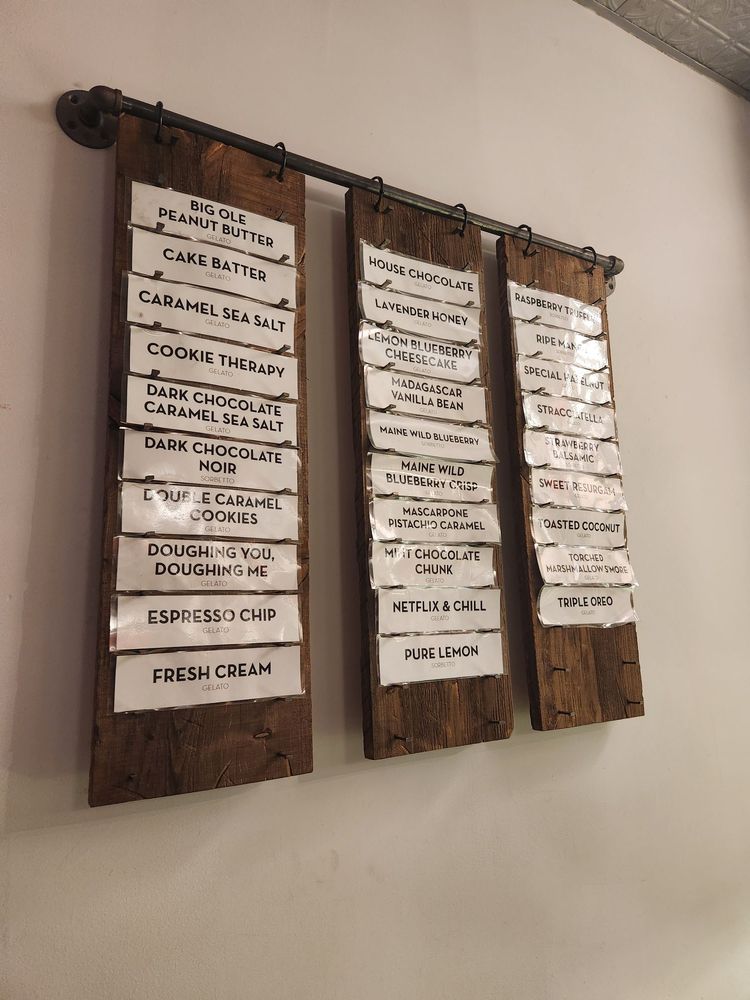 BIG OLE
PEANUT BUTTER
GELATO
CAKE BATTER
GELATO
CARAMEL SEA SALT
GELATO
COOKIE THERAPY
GELATO
DARK CHOCOLATE
CARAMEL SEA SALT
GELATO
DARK CHOCOLATE
NOIR
SORBETTO
DOUBLE CARAMEL
COOKIES
GELATO
DOUGHING YOU,
DOUGHING ME
GELATO
ESPRESSO CHIP
GELATO
FRESH CREAM
GELATO
HOUSE CHOCOLATE
GELATO
LAVENDER HONEY
GELATO
LEMON BLUEBERRY
CHEESECAKE
GELATO
MADAGASCAR
VANILLA BEAN
GELATO
MAINE WILD BLUEBERRY
SORBETTO
MAINE WILD
BLUEBERRY CRISP
GELATO
MASCARPONE
PISTACHIO CARAMEL
GELATO
MINT CHOCOLATE
CHUNK
GELATO
NETFLIX & CHILL
GELATO
PURE LEMON
SORBETTO
RASPBERRY TRUFFLE
SORBETTO
RIPE MANGO
SORBETTO
SPECIAL HAZELNUT
STRACCIATELLA
STRAWBERRY
BALSAMIC
SWEET RESURGAM
TOASTED COCONUT
GELATO
TORCHED
MARSHMALLOW S'MORE
GELATO
TRIPLE OREO
GELATO